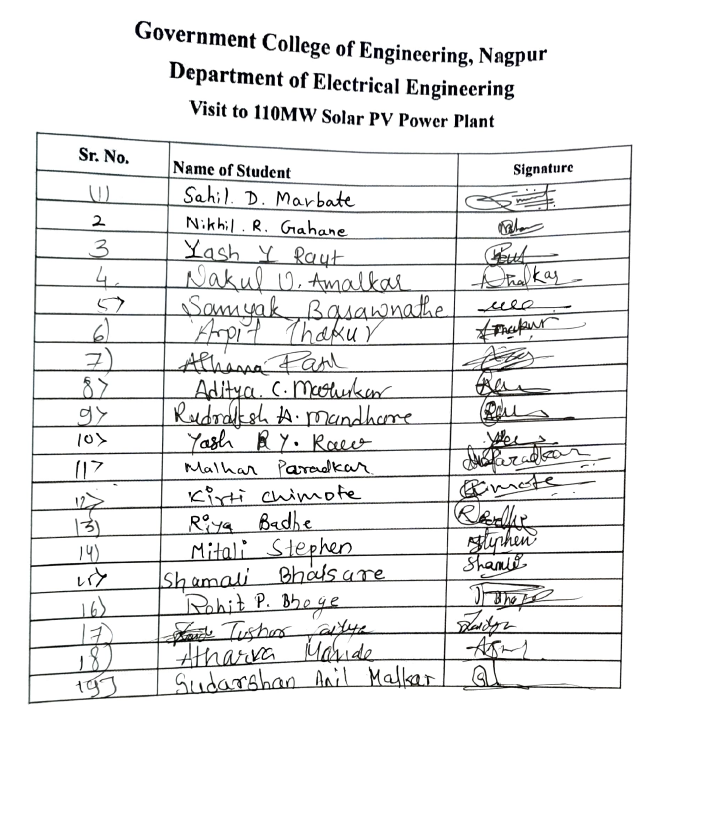 Government College of Engineering, Nagpur
Department of Electrical Engineering
Visit to 110MW Solar PV Power Plant
Sr. No. Name of Student Signature
(1) Sahil. D. Marbate
2 Nikhil. R. Gahane
3 Yash Y Raut
4. Nakul V. Amalkar
5> Samyak Basawnathe
6) Arpit Thakur Thakur
7) Atharva Patil
8> Aditya. C. Mathurkar
9> Rudraksh A. Mandhare
10> Yash Y.
11> Malhar Paradkar Paradkar
12> Kirti chimote Kimote
13) Riya Badhe
14) Mitali Stephen Stephen
15> Shamali Bhalsare
16) Rohit P. Bhoge
17) Tushar Vaidya
18) Atharva
19) Sudarshan Anil Malkar